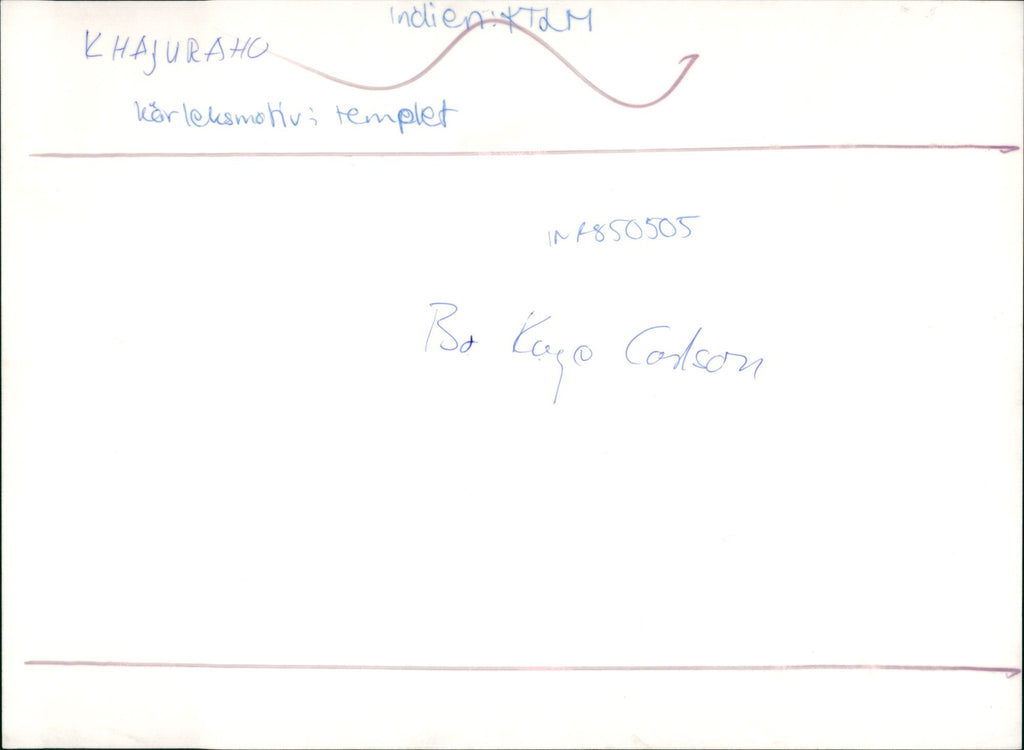 Indien:
KHAJURAHO
kärleksmotiv i templet
INK850505
Bo Kage Carlson